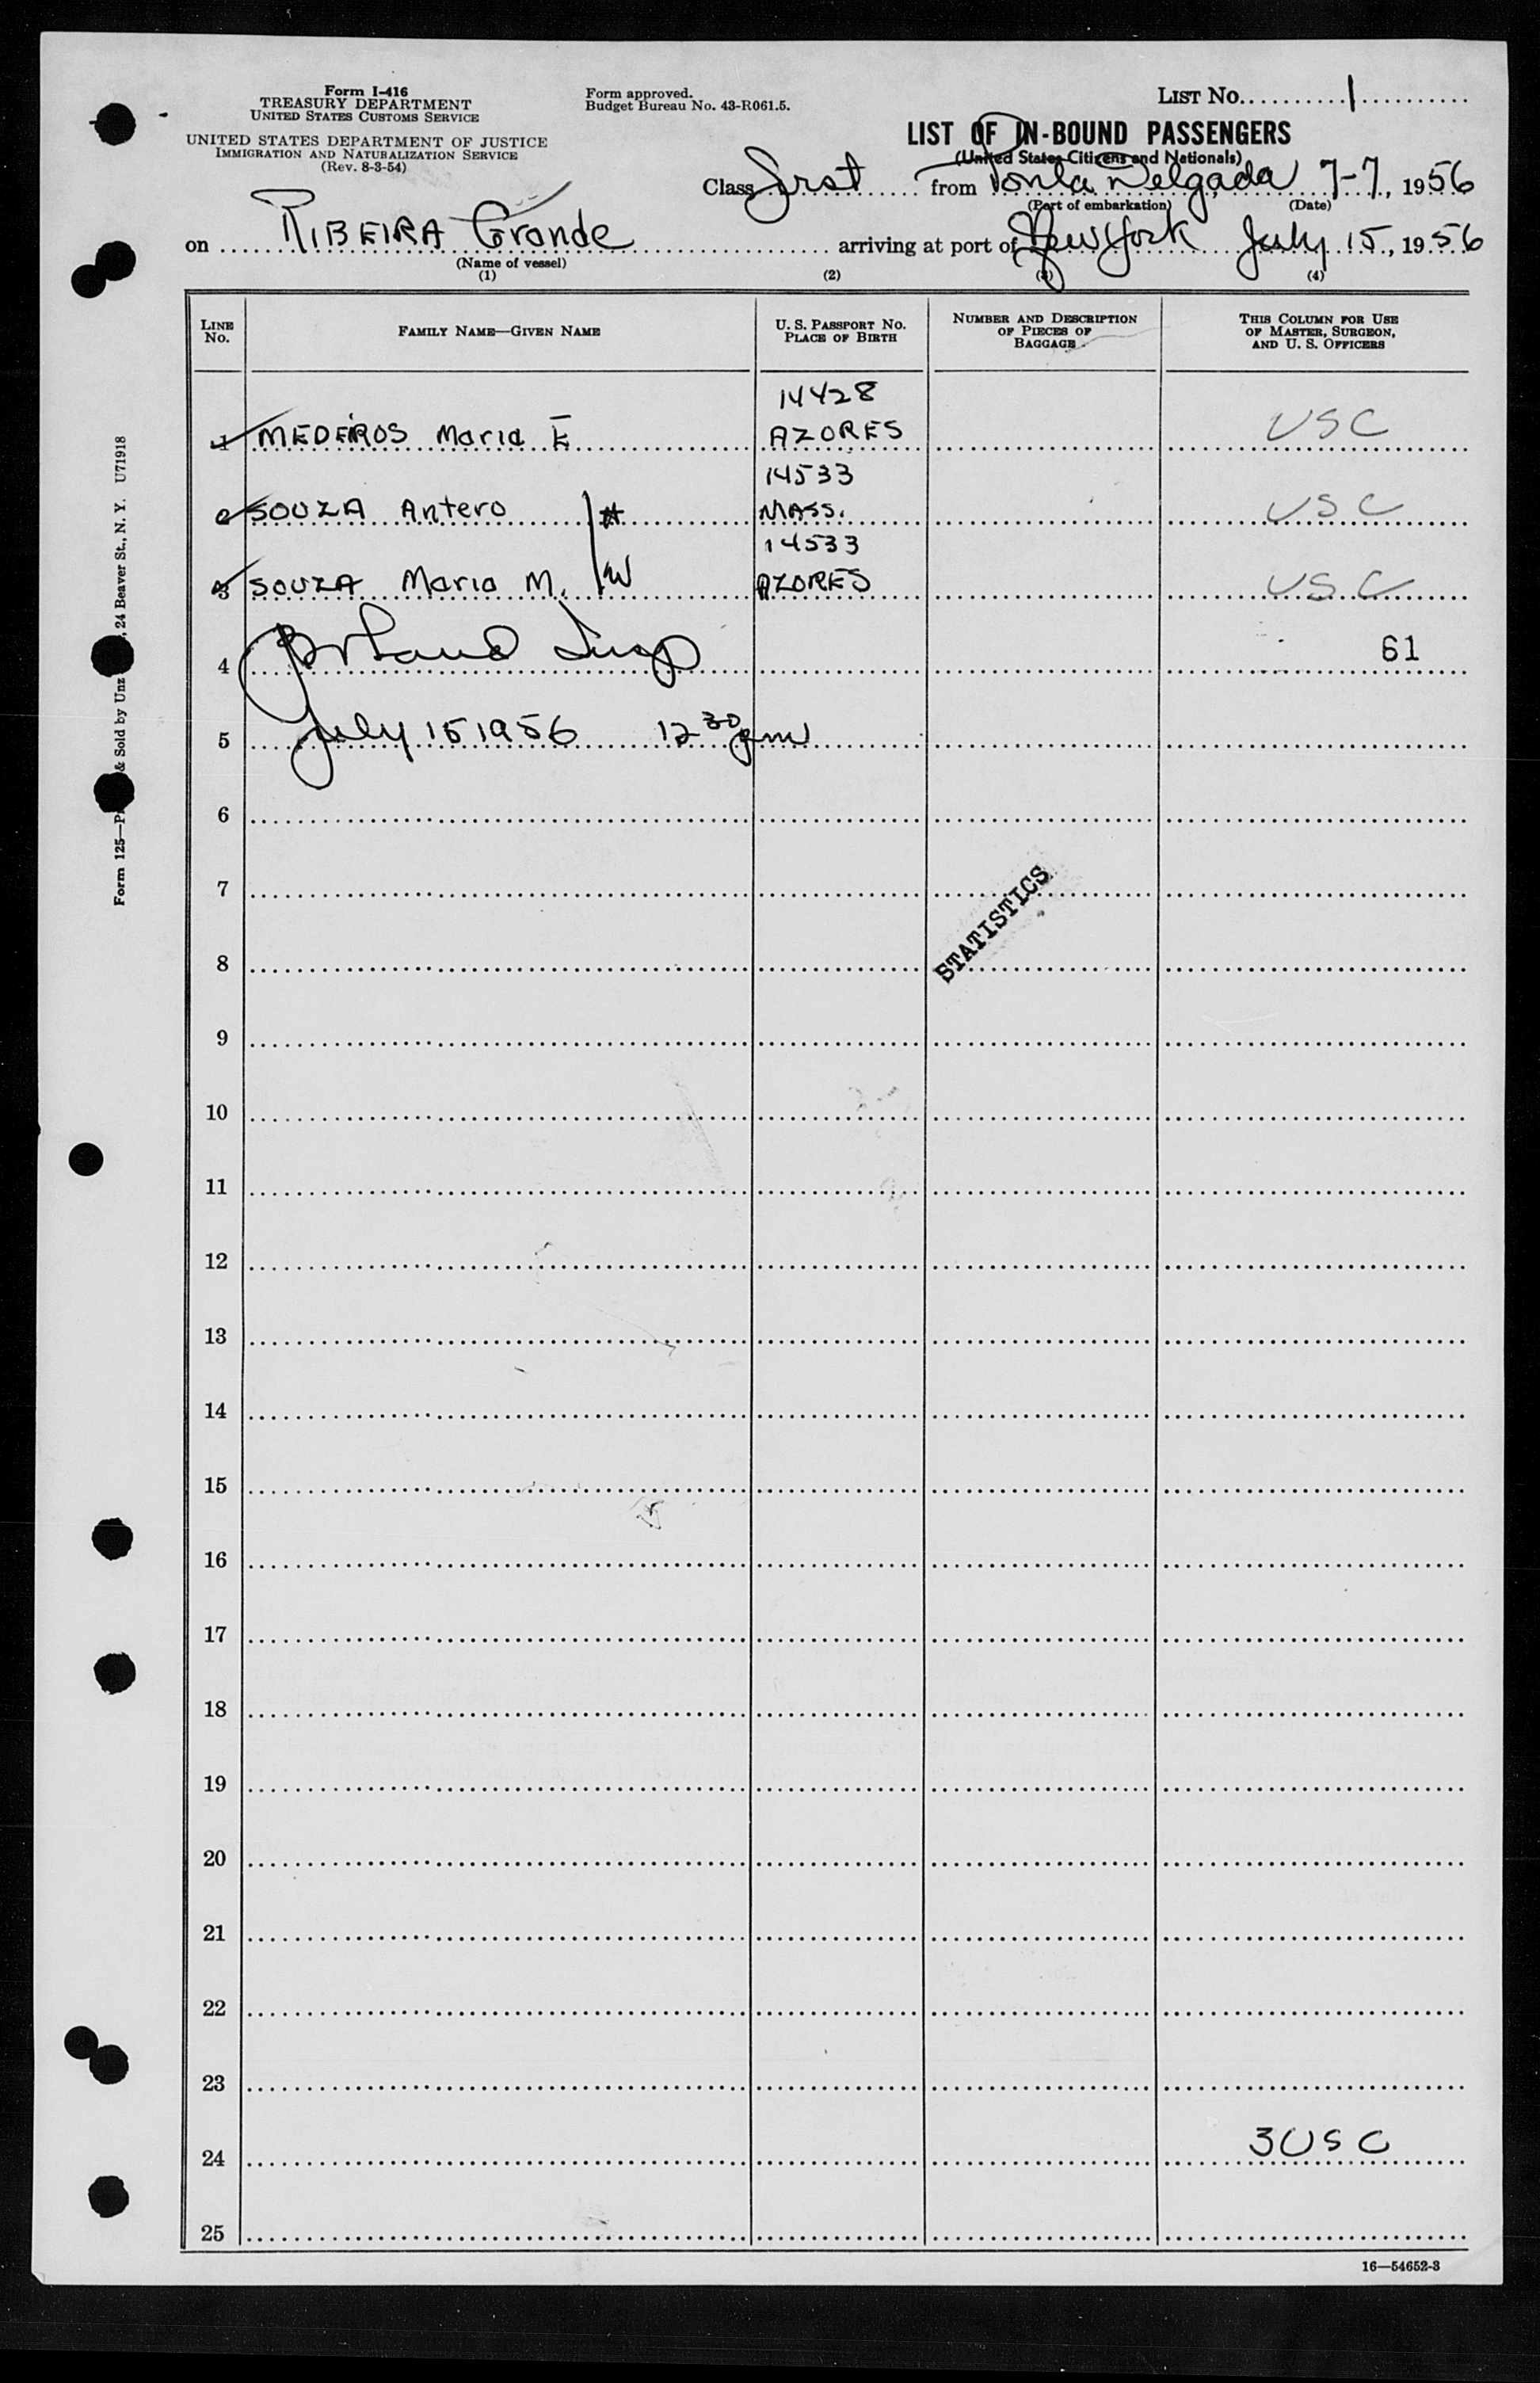 Form I-416
TREASURY DEPARTMENT
UNITED STATES CUSTOMS SERVICE
UNITED STATES DEPARTMENT OF JUSTICE
IMMIGRATION AND NATURALIZATION SERVICE
(Rev. 8-3-54)
Form approved.
Budget Bureau No. 43-R061.5.
LIST No. 1
LIST OF IN-BOUND PASSENGERS
(United States Citizens and Nationals)
Class first from Ponta Delgada 7-7, 1956
(Port of embarkation) (Date)
on RIBEIRA Grande arriving at port of New York July 15, 1956
(Name of vessel)
(1) (2) (3) (4)
LINE No. FAMILY NAME—GIVEN NAME U. S. PASSPORT No. PLACE OF BIRTH NUMBER AND DESCRIPTION OF PIECES OF BAGGAGE THIS COLUMN FOR USE OF MASTER, SURGEON, AND U. S. OFFICERS
14428
1 MEDEIROS Maria E AZORES USC
14533
2 SOUZA Antero H MASS. USC
14533
3 SOUZA Maria M. W AZORES USC
4 Insp 61
5 July 15 1956 12 30 pm
6
7
STATISTICS
8
9
10
11
12
13
14
15
16
17
18
19
20
21
22
23
24 3 USC
25
16—54652-3
Form 125—P & Sold by Unz , 24 Beaver St., N. Y. U71918